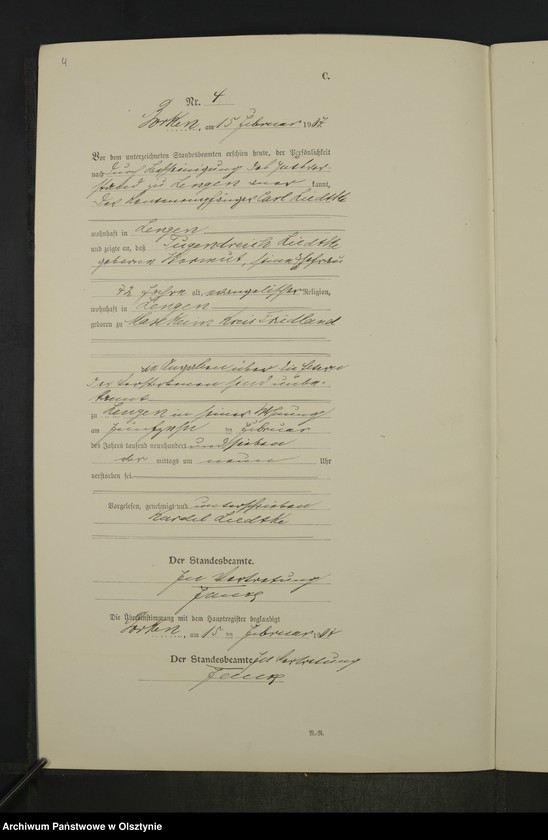 4
C.
Nr. 4
Borken, am 15 Februar 1907
Vor dem unterzeichneten Standesbeamten erschien heute, der Persönlichkeit
nach durch Bescheinigung des Gutsvor-
stands zu Lengen kannt,
der Carl Liedtke
wohnhaft in Lengen
und zeigte an, daß Tugendreich Liedtke
geborene Wermut, seine Ehefrau
42 Jahre alt, evangelischer Religion,
wohnhaft in Lengen
geboren zu Kreis Friedland
Angaben über die Eltern
der Verstorbenen sind unbe-
kannt
zu Lengen in seiner Wohnung
am fünfzehn ten Februar
des Jahres tausend neunhundert und sieben
mittags um neun Uhr
verstorben sei.
Vorgelesen, genehmigt und unterschrieben
Liedtke
Der Standesbeamte.
In Vertretung
Die Übereinstimmung mit dem Hauptregister beglaubigt
Borken, am 15 ten Februar 1907
Der Standesbeamte In Vertretung
N.-R.
Archiwum Państwowe w Olsztynie